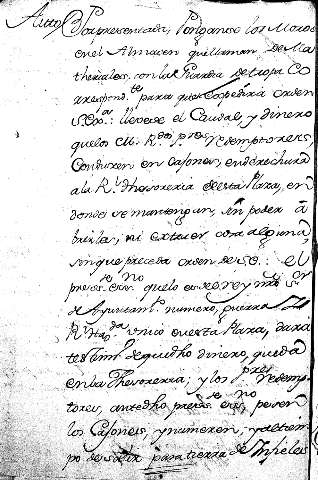 Auto Por presentada; Ponganse los Moros
en el Almacen que llaman de Ma
theriales, con la Guardia de tropa Co
rrespond.te para que se expedirá orden
S.Exa.: llevese el Caudal, y dinero
que los M. R.dos P.res Redemptores,
Conducen en Cajones, en derechura
a la R.l Thesoreria de esta Plaza, en
donde se mantengan, sin poder a
brirla, ni extraer cosa alguna,
sin que preceda orden de S.E.: el
pres.te ess.no que lo es del rey nro s.or
de Ayuntam.to numero, guerra
R.l Haz.da unico en esta Plaza, dará
testim.o de que dho dinero, queda
en la Thesoreria; y los P.res Redemp
tores, ante dho pres.te ess.no pesen
los Cajones, y numeren; y al tiem
po de salir para tierra de Infieles